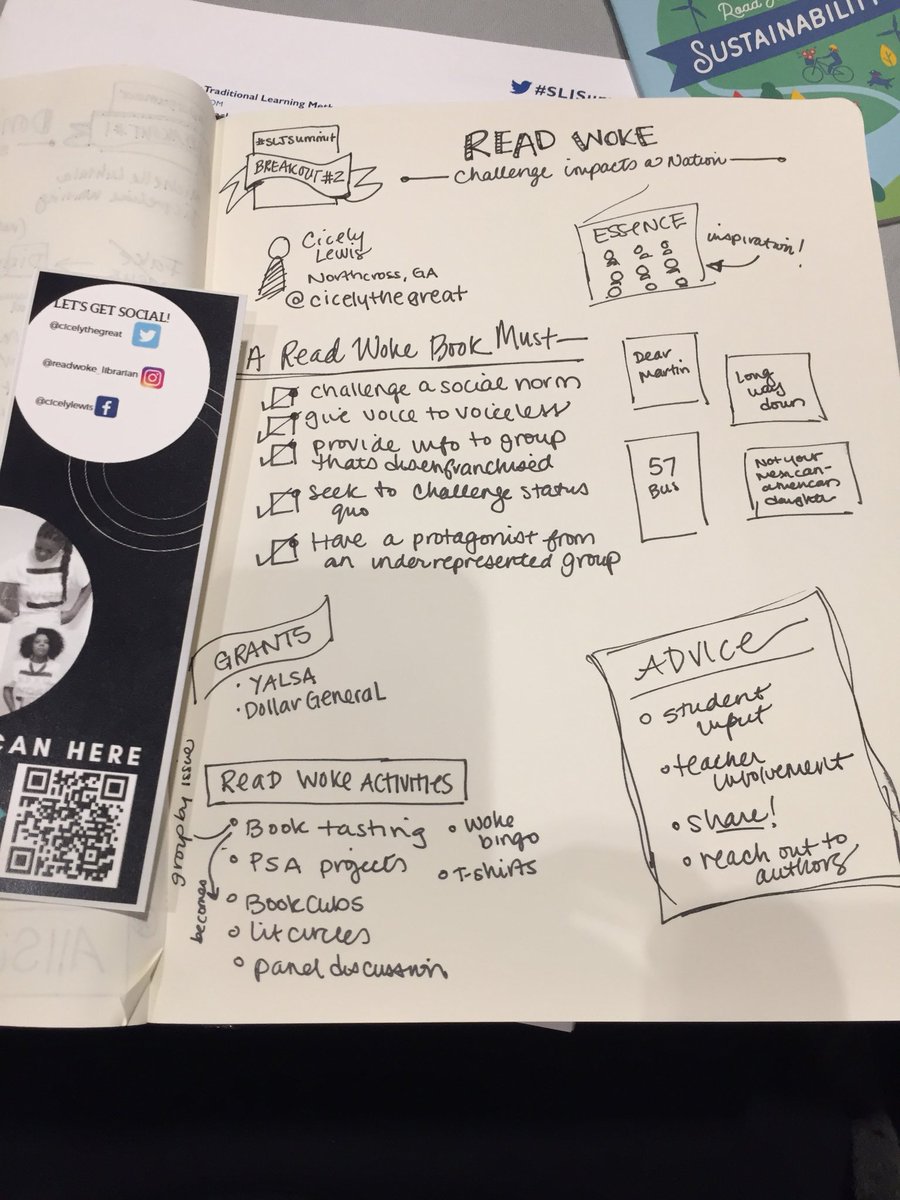 Road
SUSTAINABILITY
Traditional Learning Meth
OM
#SLJSu
#SLJSummit
BREAKOUT #2
READ WOKE
Challenge impacts a Nation
Cicely
Lewis
Northcross, GA
@cicelythegreat
ESSENCE
inspiration!
LET'S GET SOCIAL!
@cicelythegreat
@readwoke_librarian
@cicelylewis
CAN HERE
A Read Woke Book Must—
challenge a social norm
give voice to voiceless
provide info to group
thats disenfranchised
seek to challenge status
quo
Have a protagonist from
an underrepresented group
Dear
Martin
Long
way
down
57
Bus
Not your
mexican-
american
daughter
GRANTS
• YALSA
• Dollar General
ADVICE
student
input
• teacher
involvement
• share!
• reach out to
authors
READ WOKE ACTIVITIES
group by issue
becomes
Book tasting
PSA projects
Book clubs
lit circles
panel discussion
• woke
bingo
• T-shirts